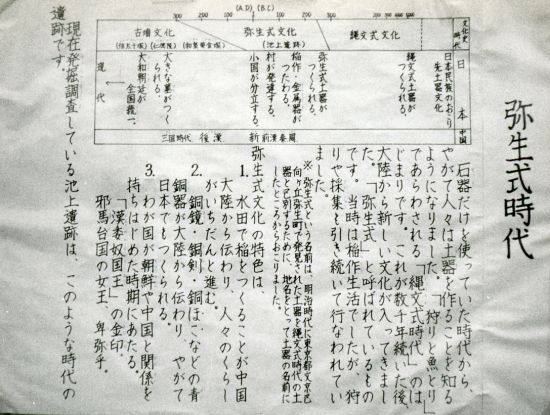 弥生式時代
(A.D) (B.C)
文化史
時代
縄文式文化
弥生式文化
(池上遺跡)
古墳文化
日本
日本民族のおこり
先土器文化
縄文式土器が
つくられる。
弥生式土器が
つくられる。
稲作・金属器が
つたわる。
村が発達する。
小国が分立する。
大きな墓がつく
られる
大和朝廷が
全国統一。
現代
中国
周 秦 漢 前 新 後漢 三国時代
石器だけを使っていた時代から、
やがて人々は土器を作ることを知る
ようになりました。「狩りと魚とり
であらわされる「縄文式時代」のは
じまりです。これが数千年続いた後、
大陸から新しい文化が入ってきまし
た。「弥生式」と呼ばれているもの
です。当時は稲作生活でしたが、狩
りや採集を引き続いて行なわれてい
ました。
※弥生式という名前は、明治時代に東京都文京区
向ヶ丘弥生町で発見された土器を縄文式時代の土
器と区別するために、地名をとって土器の名前に
したところからおこりました。
弥生式文化の特色は、
1. 水田で稲をつくることが中国
大陸から伝わり、人々のくらし
がいちだんと進む。
2. 銅鏡・銅剣・銅ほこなどの青
銅器が大陸から伝わり、やがて
日本でもつくられる。
3. わが国が朝鮮や中国と関係を
持ちはじめた時期にあたる。
「漢委奴国王」の金印、
邪馬台国の女王、卑弥乎。
現在発掘調査している池上遺跡は、このような時代の
遺跡です。